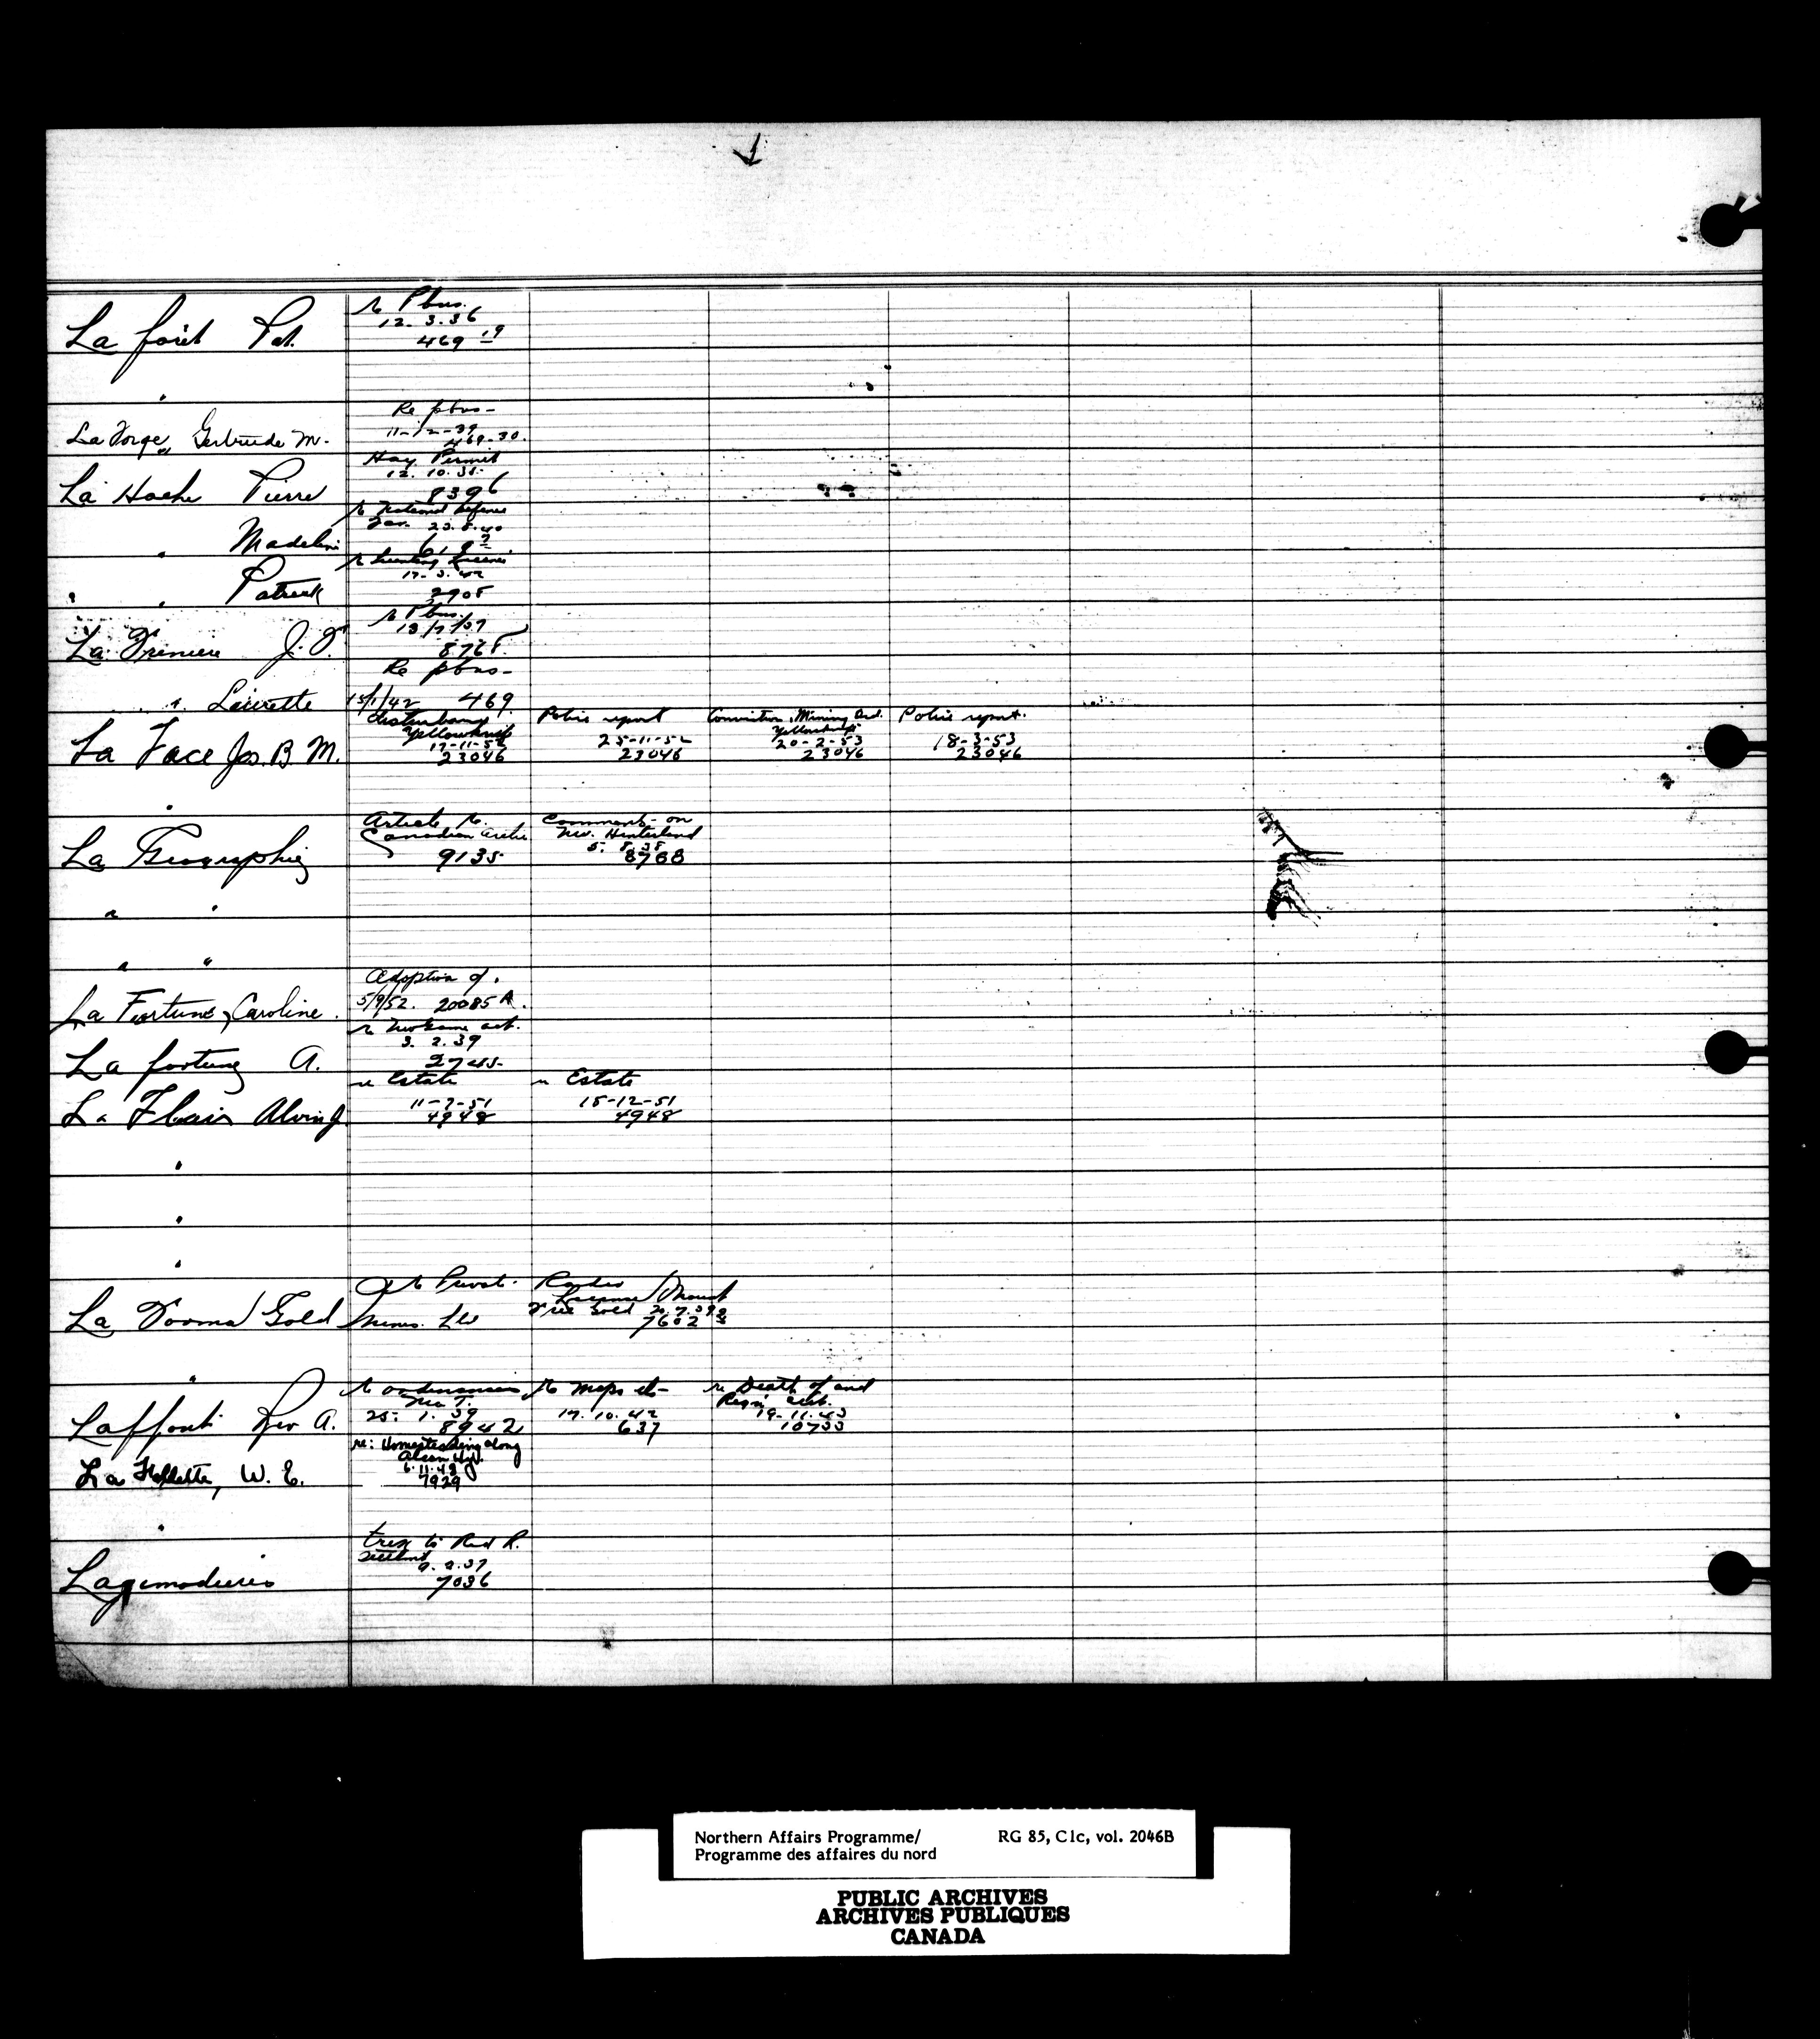 La forêt Pat.
re Pbns.
12. 3. 36
469 19
"
La Forge, Gertrude M.
Re pbns -
11-12-39
469-30.
La Hache Pierre
Hay Permit
12. 10. 35.
8396
" Madeline
re National Defence
23. 8. 40
" " Patrick
re Hunting License
17. 3. 42
2905
La Freniere J. F.
re Pbns.
13/7/37
8768.
" Laurette
Re pbns -
15/1/42 469.
La Face Jos. B M.
disturbance
Yellowknife
17-11-52
23046
Police report
25-11-52
23046
Conviction, Mining Ord.
Yellowknife
20-2-53
23046
Police report.
18-3-53
23046
"
La Geographie
Article re.
Canadian Arctic
9135
Comments on
New. Hinterland
5. 8. 38
8788
" "
" "
La Fortune, Caroline.
Adoption of.
5/9/52. 20085 A.
La fortune A.
re Game act.
3. 2. 39
2745
La Flair Alvin J.
re Estate
11-7-51
4948
re Estate
15-12-51
4948
"
"
"
La Forma Gold Mines. Ltd
re Privat.
Radio
License / Mount
Free Gold 20. 7. 39
7602
"
Laffont Rev A.
re ordinances
N.W.T.
25. 1. 39
8942
re Maps etc
17. 10. 42
637
re Death of and
Regn Cert.
19-11-43
10733
La Follette, W. E.
re: Homesteading along
Alcan Hwy.
6. 11. 43
7929
"
Lagemodieres
trek to Red R.
Settlmt
9. 2. 37
7036
Northern Affairs Programme/
Programme des affaires du nord
RG 85, C1c, vol. 2046B
PUBLIC ARCHIVES
ARCHIVES PUBLIQUES
CANADA